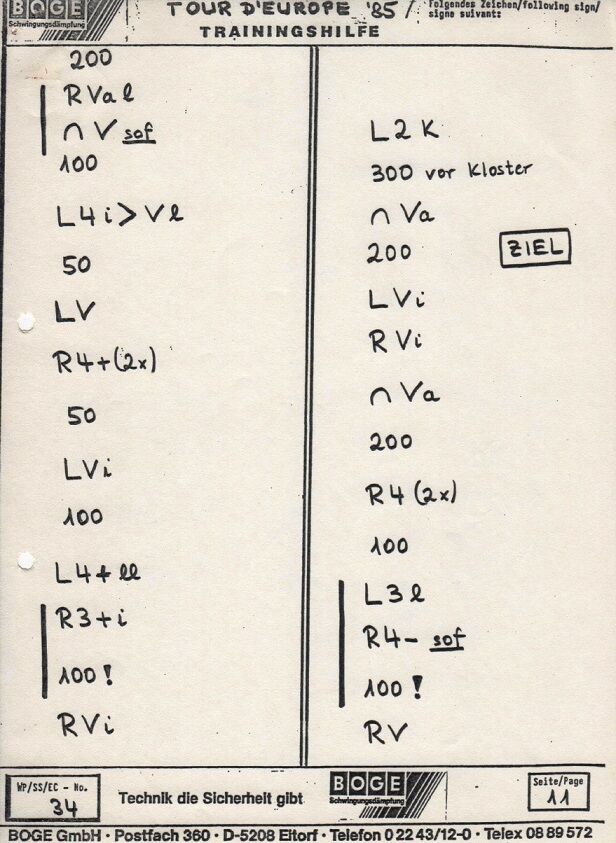 BOGE
Schwingungsdämpfung
TOUR D'EUROPE '85 /
TRAININGSHILFE
folgendes Zeichen/following sign/
signe suivant:
200
R Va l
∩ V sof
100
L4 i > V l
50
LV
R4+ (2x)
50
LVi
100
L4+ ll
R3+ i
100!
RVi
L2 K
300 vor Kloster
∩ Va
200
ZIEL
LVi
RVi
∩ Va
200
R4 (2x)
100
L3 l
R4- sof
100!
RV
WP/SS/EC - No.
34
Technik die Sicherheit gibt
BOGE
Schwingungsdämpfung
Seite/Page
11
BOGE GmbH · Postfach 360 · D-5208 Eitorf · Telefon 0 22 43/12-0 · Telex 08 89 572